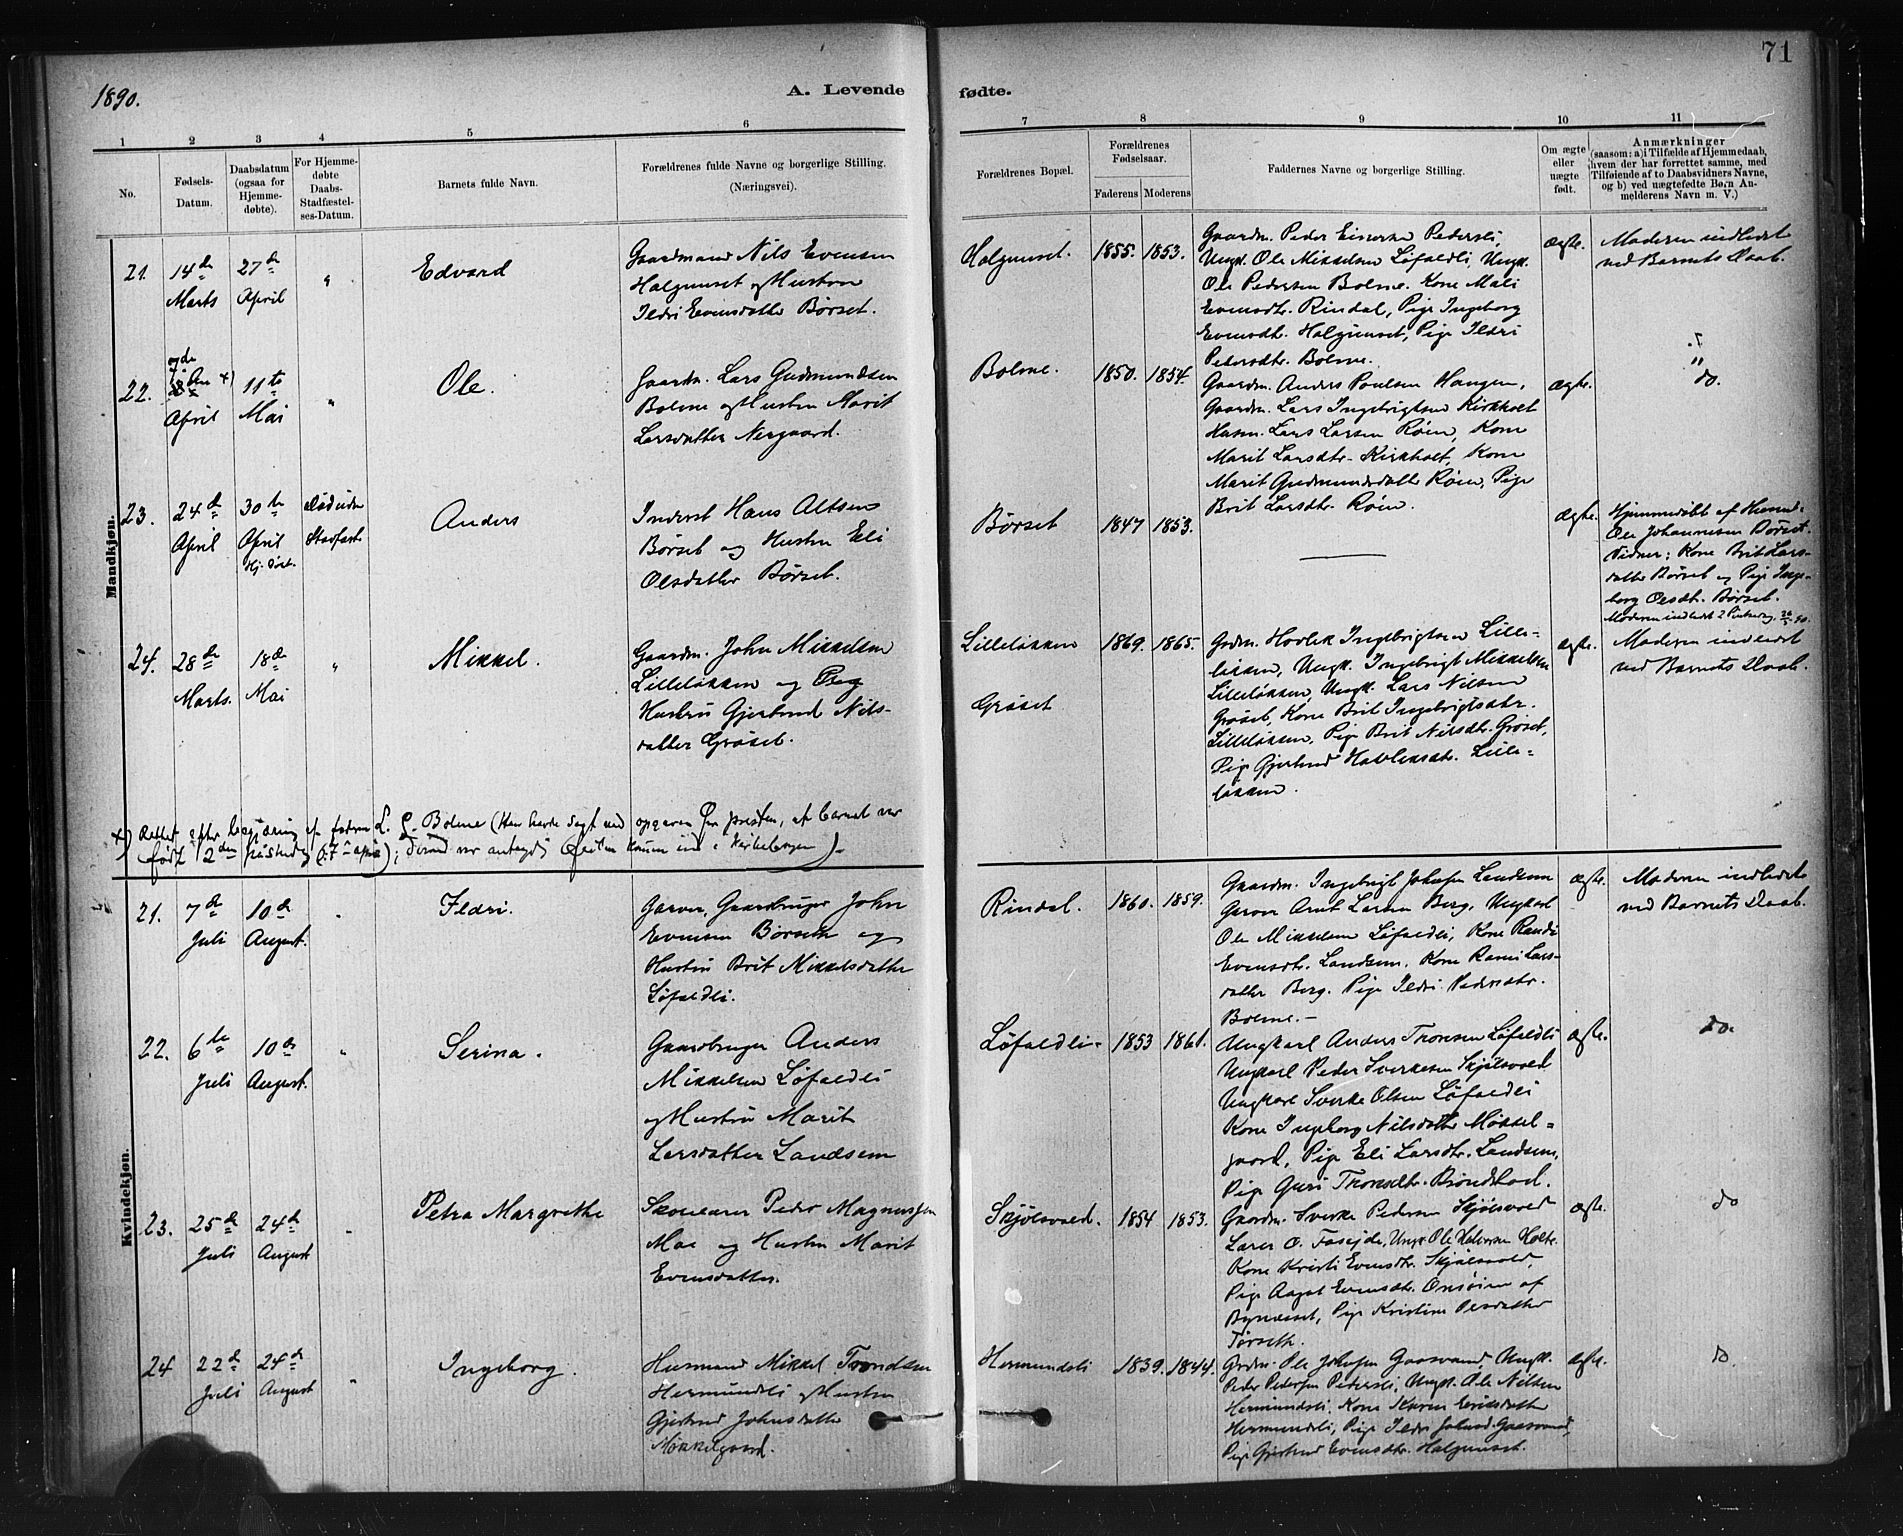 1890.
A. Levende
fødte.
71
1
2
3
4
5
6
7
8
9
10
11
No.
Fødsels-
Datum.
Daabsdatum
(ogsaa for
Hjemme-
døbte).
For Hjemme-
døbte
Daabs-
Stadfæstel-
ses-Datum.
Barnets fulde Navn.
Forældrenes fulde Navne og borgerlige Stilling.
(Næringsvei).
Forældrenes Bopæl.
Forældrenes
Fødselsaar.
Faderens
Moderens
Faddernes Navne og borgerlige Stilling.
Om ægte
eller
uægte
født.
Anmærkninger
(saasom: a) i Tilfælde af Hjemmedaab,
hvem der har forrettet samme, med
Tilføiende af to Daabsvidners Navne,
og b) ved uægtefødte Børn An-
melderens Navn m. V.)
Mandkjøn.
21.
14de
Marts
27de
April
"
Edvard
Gaardmand Nils Evensen
Halgunset og Hustru
Ildri Evensdatter Børset.
Halgunset.
1855.
1853.
Gaardm. Peder Einersen Pedersli,
Ungk. Ole Mikkelsen Løfaldli, Ungk.
Ole Pedersen Bolme. Kone Mali
Evensdtr. Rindal, Pige Ingeborg
Evensdtr. Halgunset, Pige Ildri
Pedersdtr. Bolme.
Ægte.
Moderen indledet
ved Barnets Daab.
22.
April
11te
Mai
"
Ole.
Gaardm. Lars Gudmundsen
Bolme og Hustru Marit
Larsdatter Nergaard.
Bolme.
1850.
1854.
Gaardm. Anders Poulsen Haugen,
Gaardm. Lars Ingebrigtsen Kirkholt
Husm. Lars Larsen Røen, Kone
Marit Larsdtr. Kirkholt, Kone
Marit Gudmundsdatter Røen, Pige
Brit Larsdtr. Røen.
Ægte.
do.
23.
24de
April
30te
April
Hj. Døbt.
Død uden
Stadfæst
Anders
Inderst Hans Altsen
Børset og Hustru Eli
Olsdatter Børset.
Børset
1847
1853.
Ægte.
Hjemmedøbt af Husmd.
Ole Johannesen Børset.
Vidner: Kone Brit Lars-
datter Børset og Pige Inge-
borg Olsdtr. Børset.
24.
28de
Marts.
18de
Mai
"
Mikkel.
Gaardm. John Mikkelsen
Lilleløkken og
Hustru Gjertrud Nils-
datter Grøset.
Lilleløkken
Grøset
1869.
1865.
Grdm. Hovlek Ingebrigtsen Lille-
løkken, Ungk. Ingebrigt Mikkelsen
Lilleløkken, Ungk. Lars Nilsen
Grøset, Kone Brit Ingebrigtsdtr.
Lilleløkken, Pige Brit Nilsdtr. Grøset,
Pige Gjertrud Havleksdtr. Lille-
løkken.
Ægte.
Moderen indledet
ved Barnets Daab.
Kvindekjøn.
21.
7de
Juli
10de
August.
Ildri.
Garver, Gaardbruger John
Evensen Børseth og
Hustru Brit Mikkelsdatter
Løfaldli.
Rindal.
1860.
1859.
Gaardm. Ingebrigt Johnsen Landsem
Garver Arnt Larsen Berg, Ungkarl
Ole Mikkelsen Løfaldli, Kone Randi
Evensdtr. Landsem, Kone Lars-
datter Berg. Pige Ildri Pedersdtr.
Bolme.-
Ægte.
Moderen indledet
ved Barnets Daab.
22.
6te
Juli
10de
August.
"
Serina.
Gaardbruger Anders
Mikkelsen Løfaldli
og Hustru Marit
Larsdatter Landsem
Løfaldli.
1853
1861.
Ungkarl Anders Tronsen Løfaldli
Ungkarl Peder Sverkesen Skjølsvold
Ungkarl Sverke Olsen Løfaldli
Kone Ingeborg Nilsdatter Mikkel-
gaard, Pige Eli Larsdtr. Landsem,
Pige Guri Tronsdtr. Brøndstad.
Ægte.
do.
23.
25de
Juli
24de
August
Petra Margrethe
Skolelærer Peder Magnussen
Moe og Hustru Marit
Evensdatter.
Skjølsvold.
1854
1853.
Gaardm. Sverke Pedersen Skjølsvold
Lærer O. Ungk. Ole Holte.
Kone Kristi Evensdtr. Skjølsvold,
Pige Aagot Evensdtr. af
Bynæsset, Pige Kristine Olsdatter
Tørseth.
Ægte.
do
24
22de
Juli
24de
August
"
Ingeborg.
Husmand Mikkel Trondsen
Hermundsli og Hustru
Gjertrud Johnsdatter
Mikkelgaard.
Hermundsli
1839.
1844.
Grdm. Ole Johnsen Gaasvand, Ungk.
Peder Pedersen Pedersli, Ungk. Ole Nilsen
Hermundsli, Kone Karen Eriksdatter
Hermundsli, Pige Ildri Johnsd. Gaasvand,
Pige Gjertrud Evensdtr. Halgunset.
Ægte.
do.